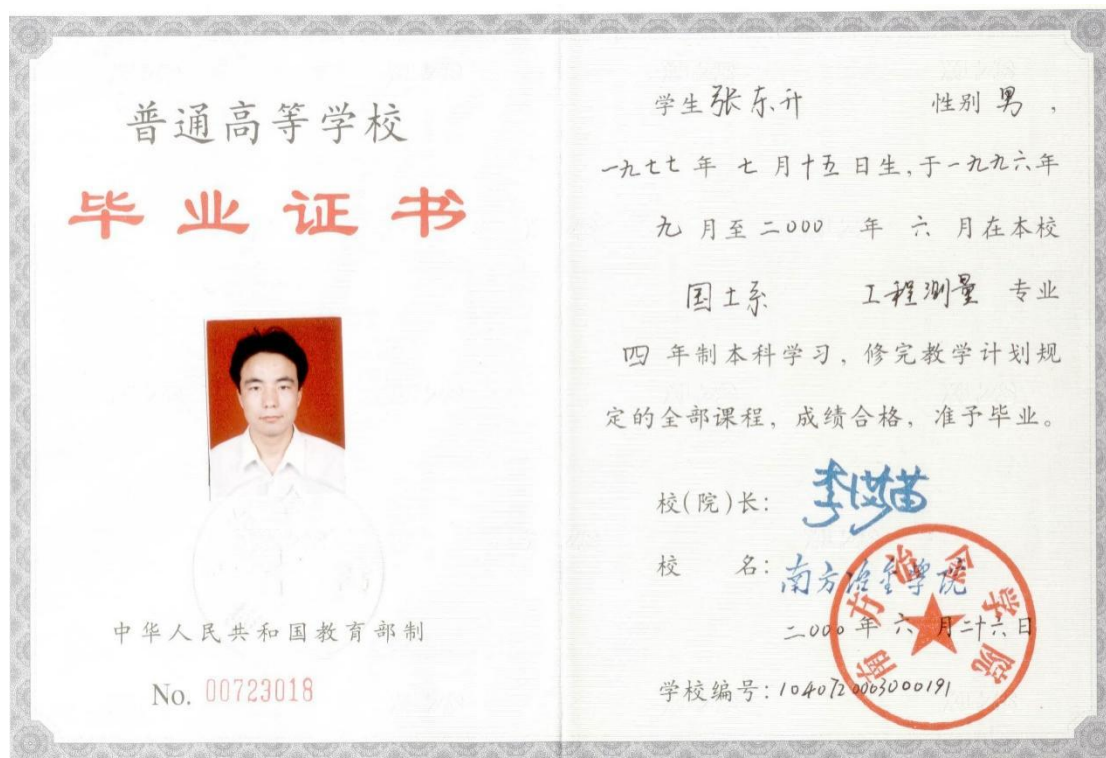 普通高等学校
毕业证书
中华人民共和国教育部制
No. 00723018
学生 张东升 性别 男 ,
一九七七 年 七 月 十五 日生,于一九九六年
九 月至 二000 年 六 月在本校
国土系 工程测量 专业
四 年制本科学习,修完教学计划规
定的全部课程,成绩合格,准予毕业。
校(院)长:
校 名: 南方冶金学院
二000 年 六 月二十六日
学校编号: 1040720003000191
南方冶金学院